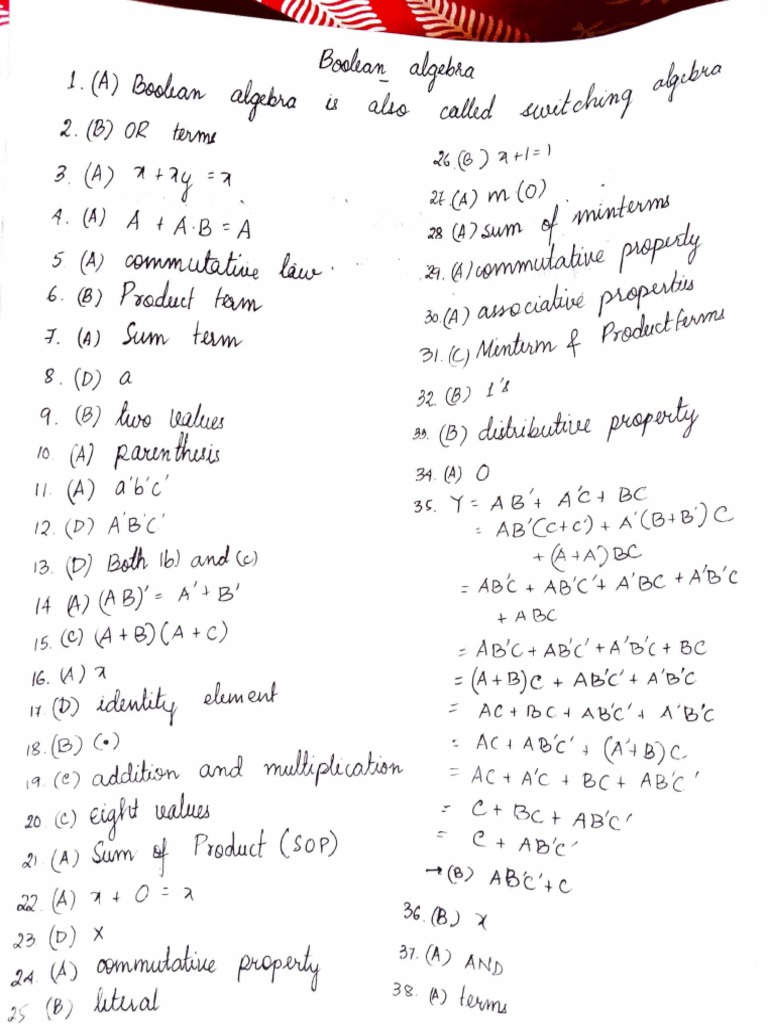 Boolean algebra
1. (A) Boolean algebra is also called switching algebra
2. (B) OR terms
3. (A) x + xy = x
4. (A) A + A·B = A
5. (A) commutative law.
6. (B) Product term
7. (A) Sum term
8. (D) a
9. (B) two values
10. (A) parenthesis
11. (A) a'b'c'
12. (D) A'B'C'
13. (D) Both (b) and (c)
14 (A) (AB)' = A' + B'
15. (C) (A + B) (A + C)
16. (A) x
17 (D) identity element
18. (B) (•)
19. (C) addition and multiplication
20 (C) eight values
21 (A) Sum of Product (SOP)
22. (A) x + 0 = x
23 (D) X
24. (A) commutative property
25 (B) literal
26. (B) x + 1 = 1
27. (A) m (0)
28 (A) sum of minterms
29. (A) commutative property
30. (A) associative properties
31. (C) Minterm & Product terms
32. (B) 1's
33. (B) distributive property
34. (A) 0
35. Y = AB' + A'C + BC
= AB'(C+C') + A'(B+B')C
+ (A+A')BC
= AB'C + AB'C' + A'BC + A'B'C
+ ABC
= AB'C + AB'C' + A'B'C + BC
= (A+B)C + AB'C' + A'B'C
= AC + BC + AB'C' + A'B'C
= AC + AB'C' + (A'+B)C
= AC + A'C + BC + AB'C'
= C + BC + AB'C'
= C + AB'C'
→ (B) AB'C' + C
36. (B) x
37. (A) AND
38. (A) terms